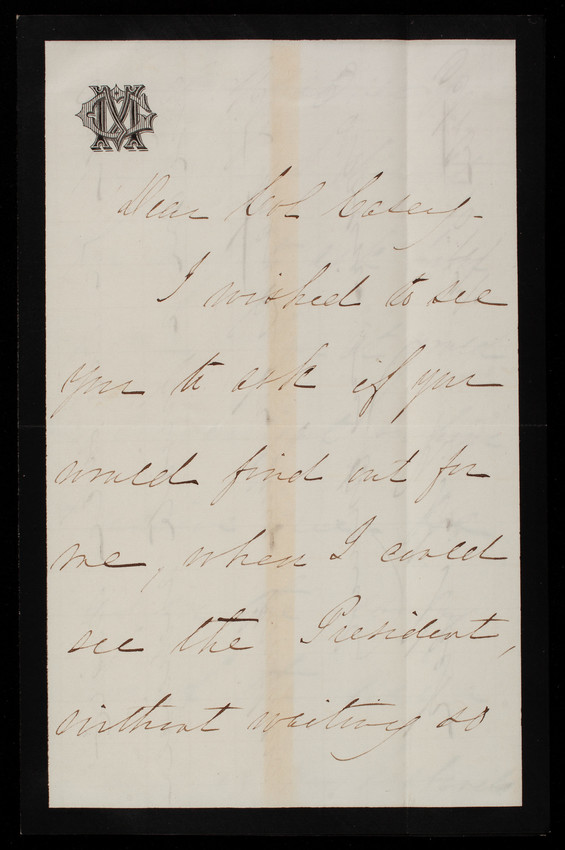 Dear Col Casey -
I wished to see
you to ask if you
would find out for
me, when I could
see the President,
without waiting so